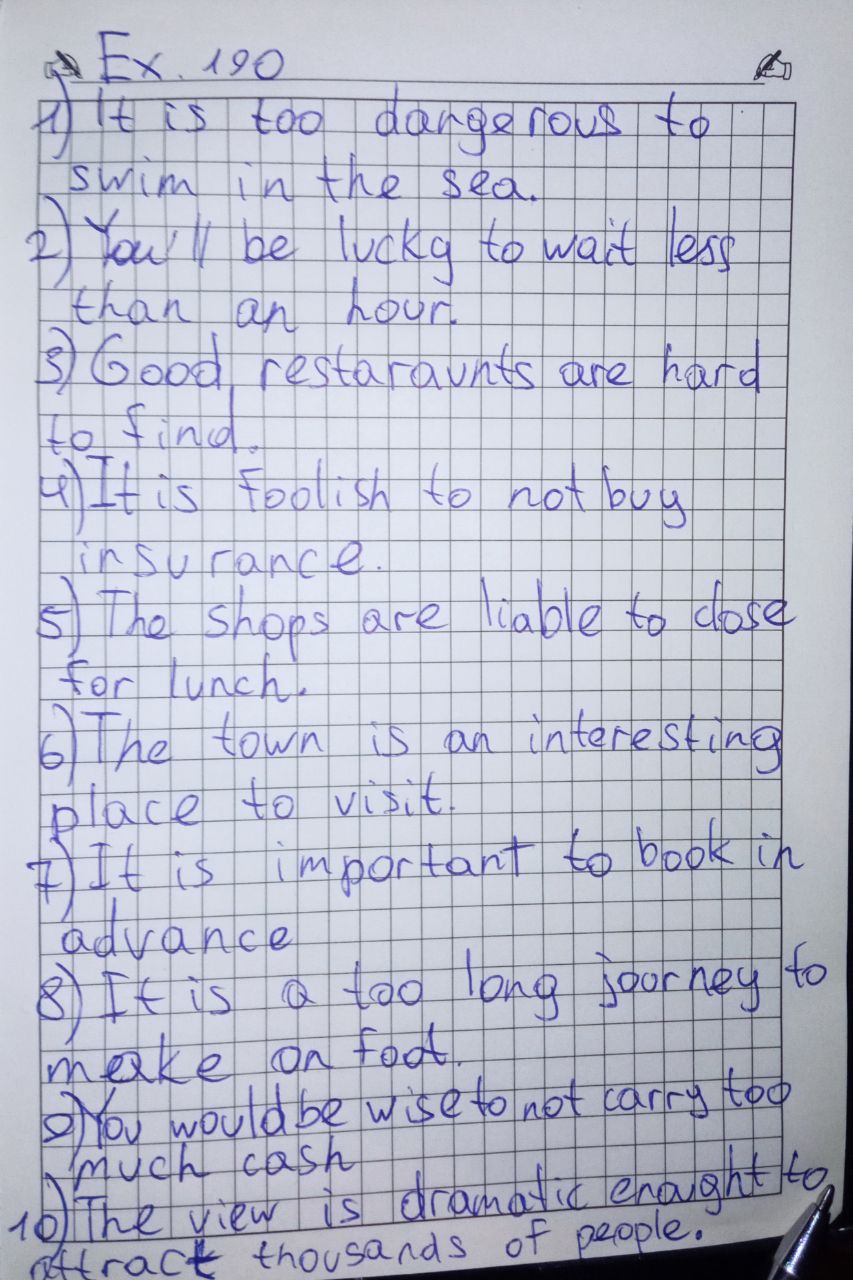 Ex. 190
1) It is too dangerous to
swim in the sea.
2) You'll be lucky to wait less
than an hour.
3) Good restaraunts are hard
to find.
4) It is foolish to not buy
insurance.
5) The shops are liable to close
for lunch.
6) The town is an interesting
place to visit.
7) It is important to book in
advance
8) It is a too long journey to
make on foot.
9) You would be wise to not carry too
much cash
10) The view is dramatic enought to
attract thousands of people.